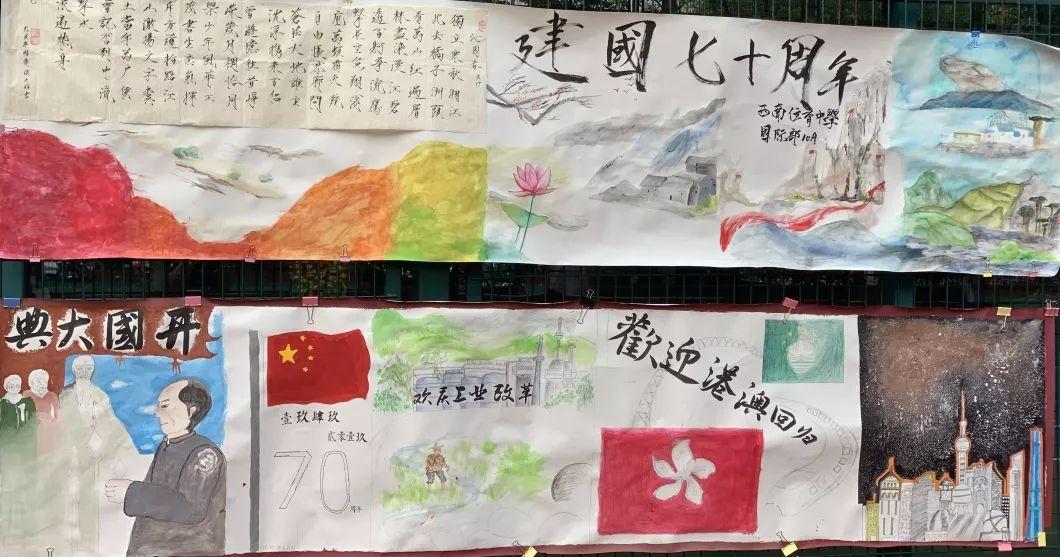 沁園春
獨立寒秋湘江
北去橘子洲頭
看萬山紅遍層
林盡染漫江碧
透百舸爭流鷹
擊長空魚翔淺
底萬類霜天競
自由悵寥廓問
蒼茫大地誰主
沉浮攜來百侶
曾遊憶往昔崢
嶸歲月稠恰同
學少年風華正
茂書生意氣揮
斥方遒指點江
山激揚文字糞
土當年萬戶侯
曾記否到中流
擊水
浪遏飛舟
建國七十周年
西南位育中學
国际部10A
開國大典
壹玖肆玖
贰零壹玖
70
周年
欢庆工业改革
歡迎港澳回归